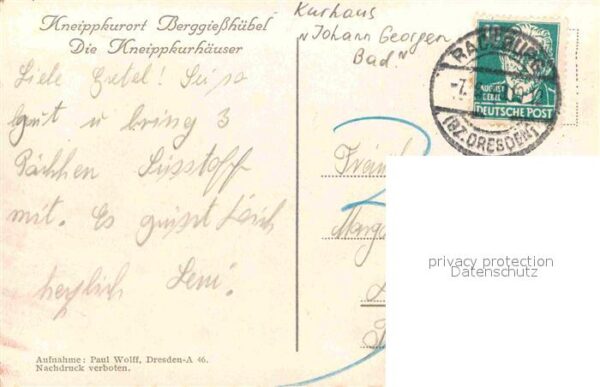 Kneippkurort Berggießhübel
Die Kneippkurhäuser
Kurhaus
"Johann Georgen
Bad"
Liebe Gretel! Sei so
gut u bring 3
Päckchen Süsstoff
mit. Es grüsst Dich
herzlich Leni.
Aufnahme: Paul Wolff, Dresden-A 46.
Nachdruck verboten.
RADEBURG
-7.
(BZ. DRESDEN)
AUGUST
BEBEL
DEUTSCHE POST
privacy protection
Datenschutz